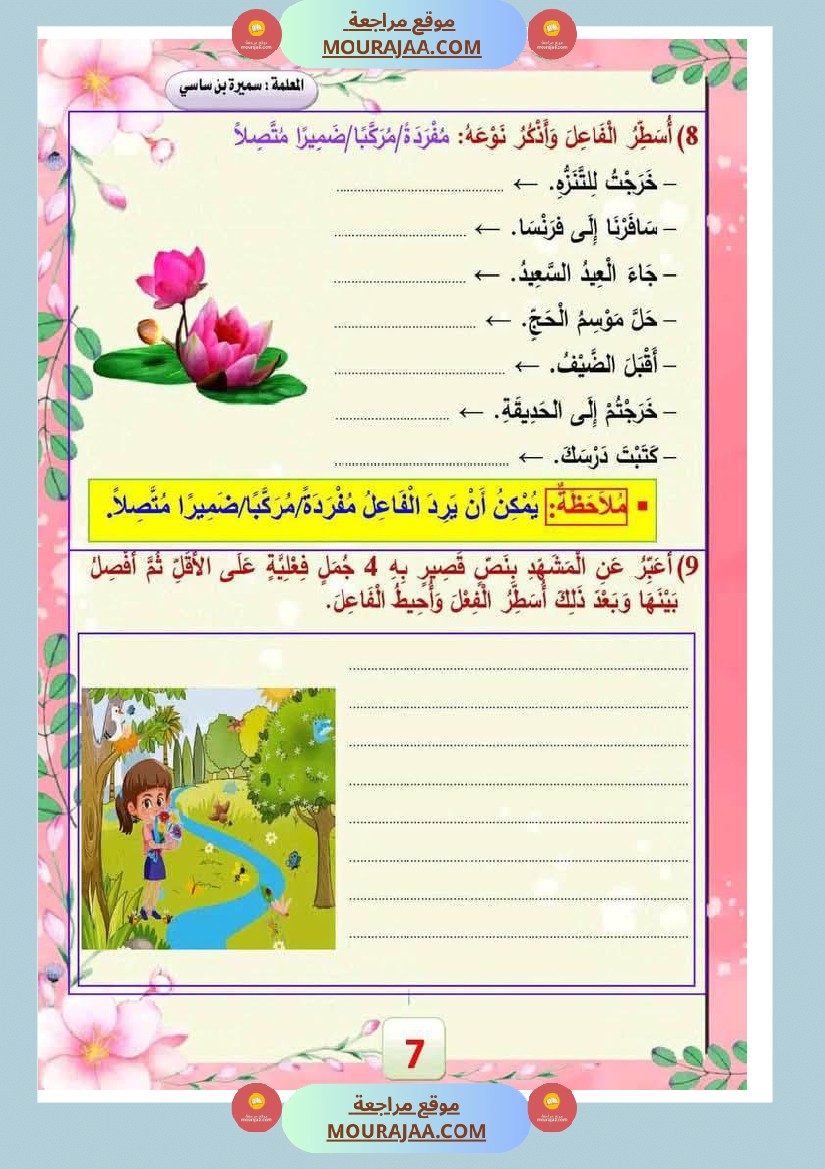 موقع مراجعة
MOURAJAA.COM
المعلمة : سميرة بن ساسي
8) أُسَطِّرُ الْفَاعِلَ وَأَذْكُرُ نَوْعَهُ: مُفْرَدَةً/مُرَكَّبًا/ضَمِيرًا مُتَّصِلاً
– خَرَجْتُ لِلتَّنَزُّهِ. ← ..........................................
– سَافَرْنَا إِلَى فَرَنْسَا. ← ..........................................
– جَاءَ الْعِيدُ السَّعِيدُ. ← ..........................................
– حَلَّ مَوْسِمُ الْحَجِّ. ← ..........................................
– أَقْبَلَ الضَّيْفُ. ← ..........................................
– خَرَجْتُمْ إِلَى الحَدِيقَةِ. ← ..........................................
– كَتَبْتَ دَرْسَكَ. ← ..........................................
▪ مُلاَحَظَةٌ: يُمْكِنُ أَنْ يَرِدَ الْفَاعِلُ مُفْرَدَةً/مُرَكَّبًا/ضَمِيرًا مُتَّصِلاً.
9) أُعَبِّرُ عَنِ الْمَشْهَدِ بِنَصٍّ قَصِيرٍ بِهِ 4 جُمَلٍ فِعْلِيَّةٍ عَلَى الأَقَلِّ ثُمَّ أَفْصِلُ
بَيْنَهَا وَبَعْدَ ذَلِكَ أُسَطِّرُ الْفِعْلَ وَأُحِيطُ الْفَاعِلَ.
7
موقع مراجعة
MOURAJAA.COM